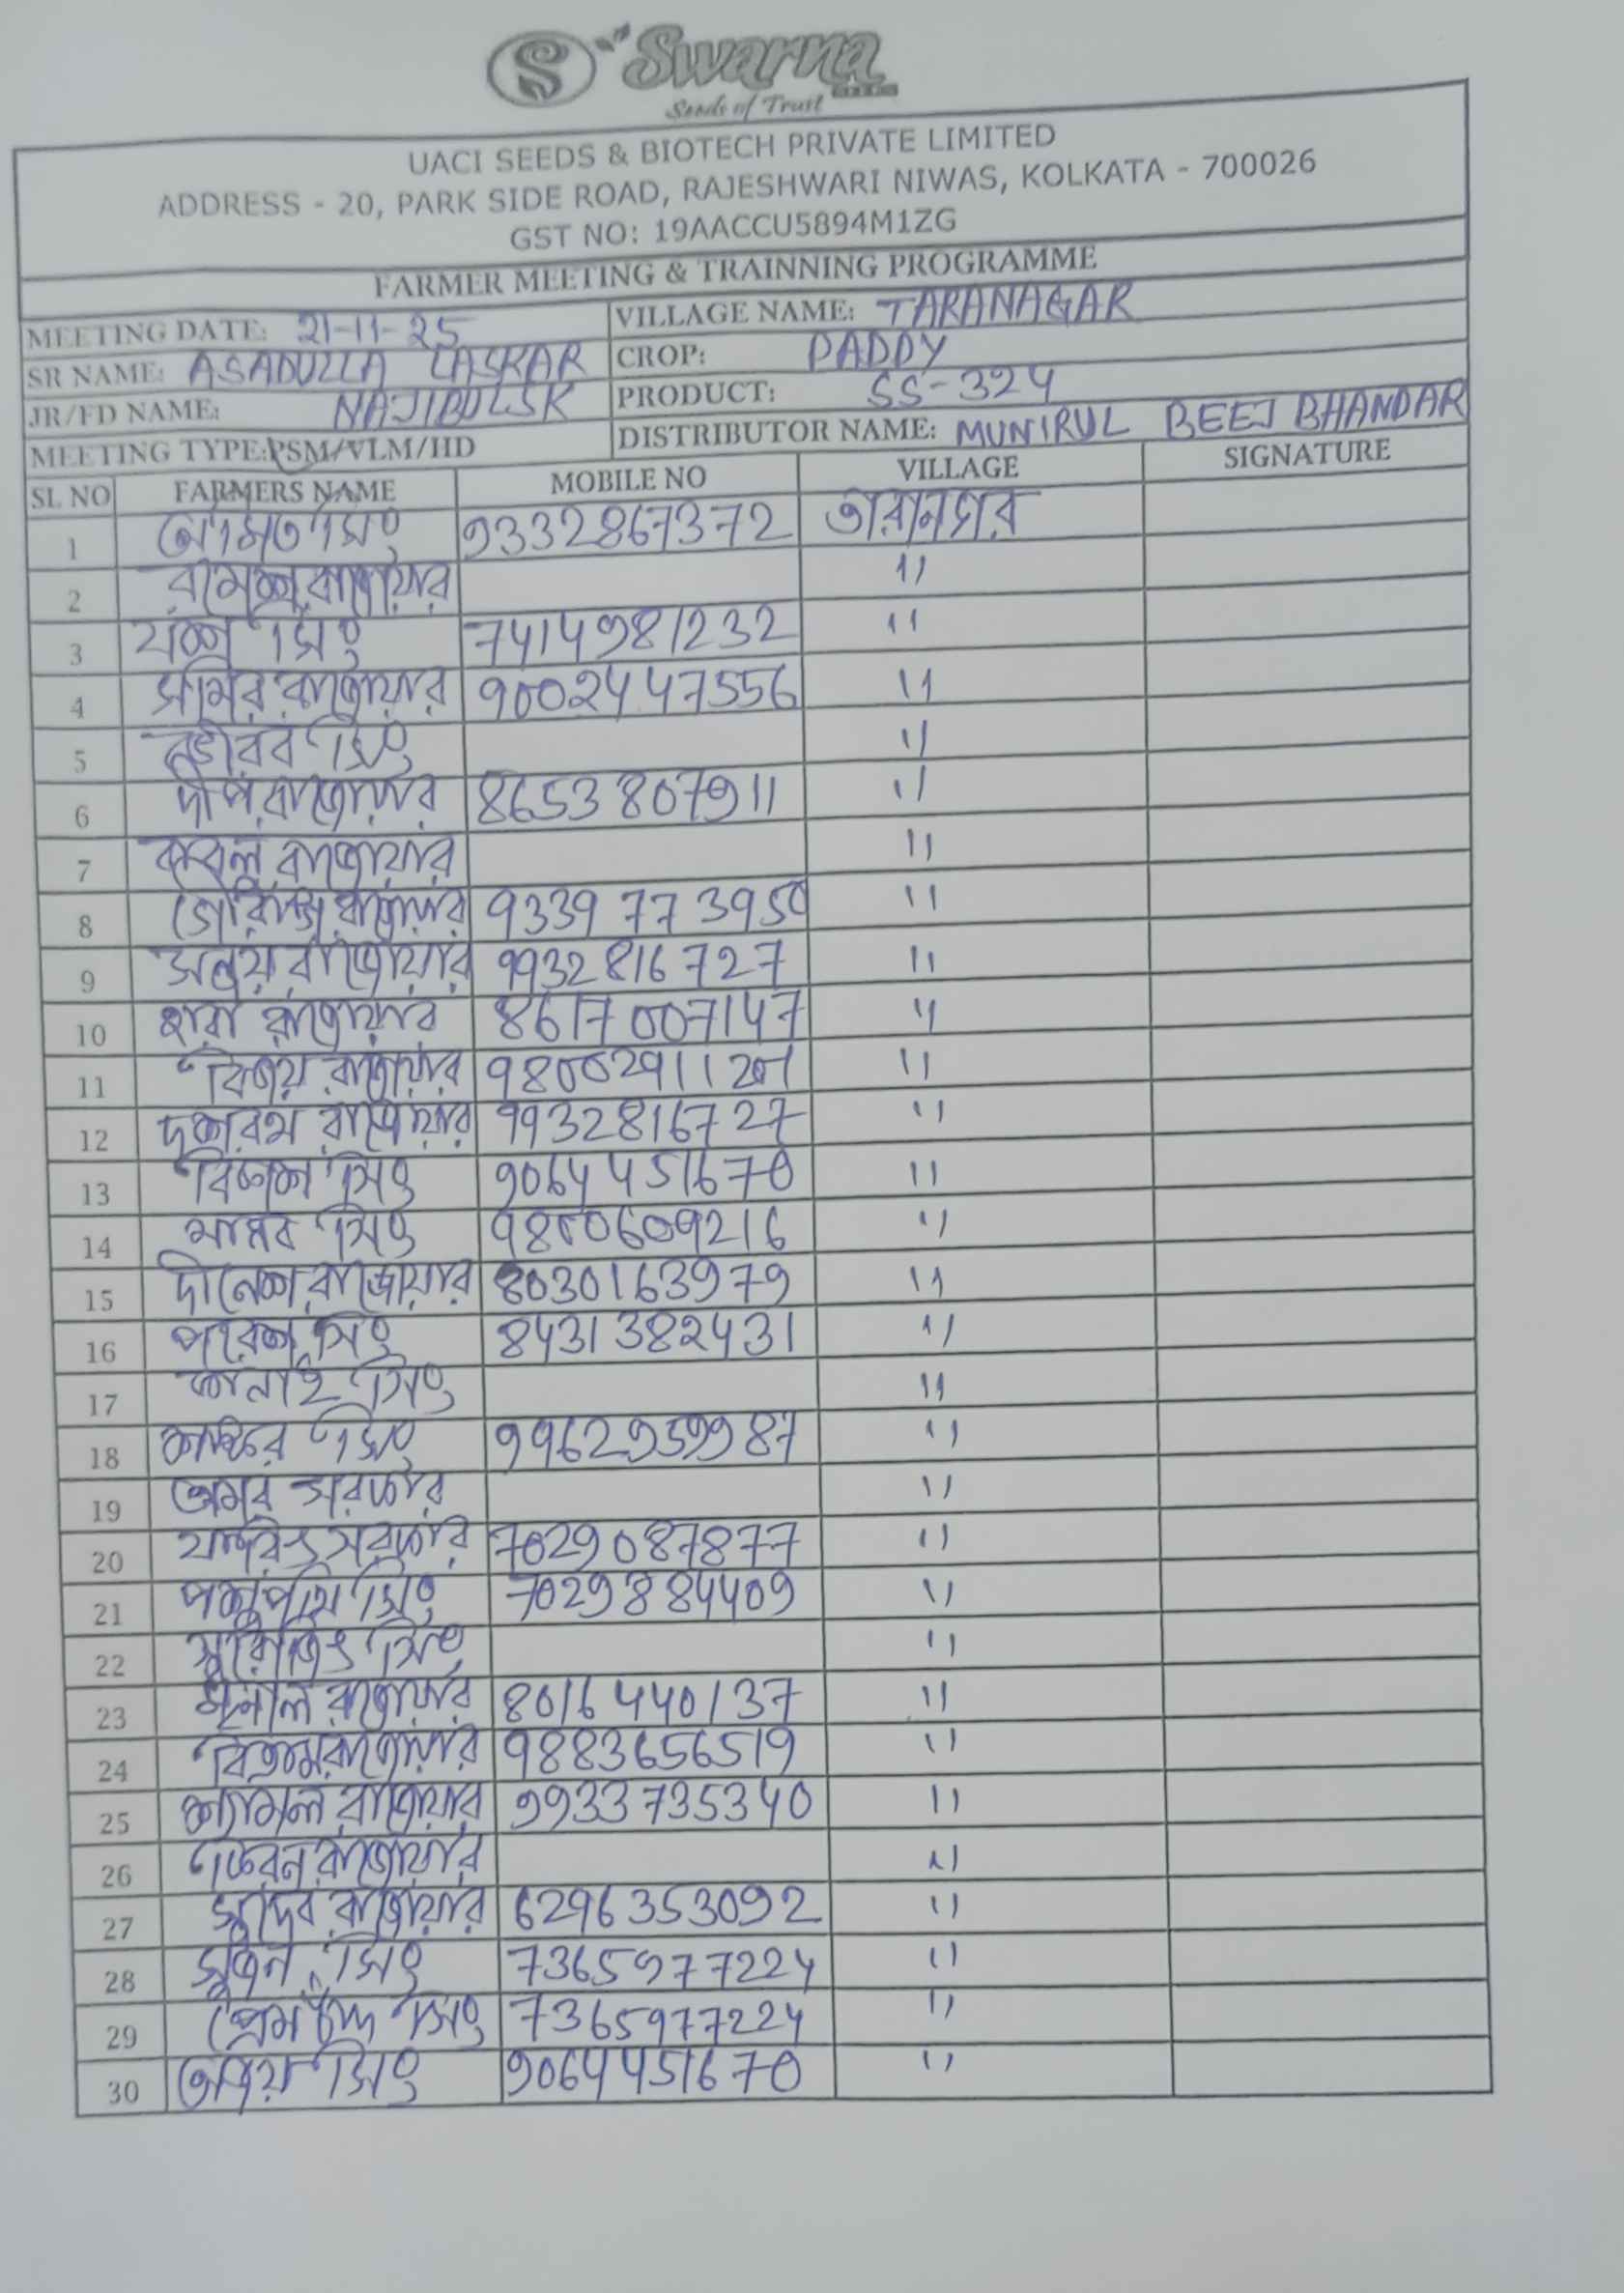 S Swarna
SEEDS
Seeds of Trust
UACI SEEDS & BIOTECH PRIVATE LIMITED
ADDRESS - 20, PARK SIDE ROAD, RAJESHWARI NIWAS, KOLKATA - 700026
GST NO: 19AACCU5894M1ZG
FARMER MEETING & TRAINNING PROGRAMME
MEETING DATE: 21-11-25 VILLAGE NAME: TARANAGAR
SR NAME: ASADULLA LASKAR CROP: PADDY
JR/FD NAME: NAJIBULSK PRODUCT: SS-324
MEETING TYPE:PSM/VLM/HD DISTRIBUTOR NAME: MUNIRUL BEEJ BHANDAR
SL NO FARMERS NAME MOBILE NO VILLAGE SIGNATURE
1 সিং 9332867372 তারানগর
2 রমেশ রাজোয়ার "
3 যশ সিং 7414981232 "
4 সমির রাজোয়ার 9002447556 "
5 সিং "
6 দীপ রাজোয়ার 8653807911 "
7 রাজোয়ার "
8 গোবিন্দ রাজোয়ার 9339773950 "
9 সঞ্জয় রাজোয়ার 9932816727 "
10 হারা রাজোয়ার 8617007147 "
11 বিজয় রাজোয়ার "
12 দশরথ রাজোয়ার 9932816727 "
13 বিকাশ সিং 9064451670 "
14 সিং 9800609216 "
15 দীনেশ রাজোয়ার 8030163979 "
16 পরেশ সিং 8431382431 "
17 কানাই সিং "
18 সিং 9962959987 "
19 অমর সরকার "
20 সরকার 7029087877 "
21 পশুপতি সিং 7029884409 "
22 সুরোজিৎ সিং "
23 রাজোয়ার 8016440137 "
24 বিক্রম রাজোয়ার 9883656519 "
25 শ্যামল রাজোয়ার 9933735340 "
26 কিরন রাজোয়ার "
27 সুদেব রাজোয়ার 6296353092 "
28 সুজন সিং 7365977224 "
29 প্রেমচাঁদ সিং 7365977224 "
30 অজয় সিং 9064451670 "